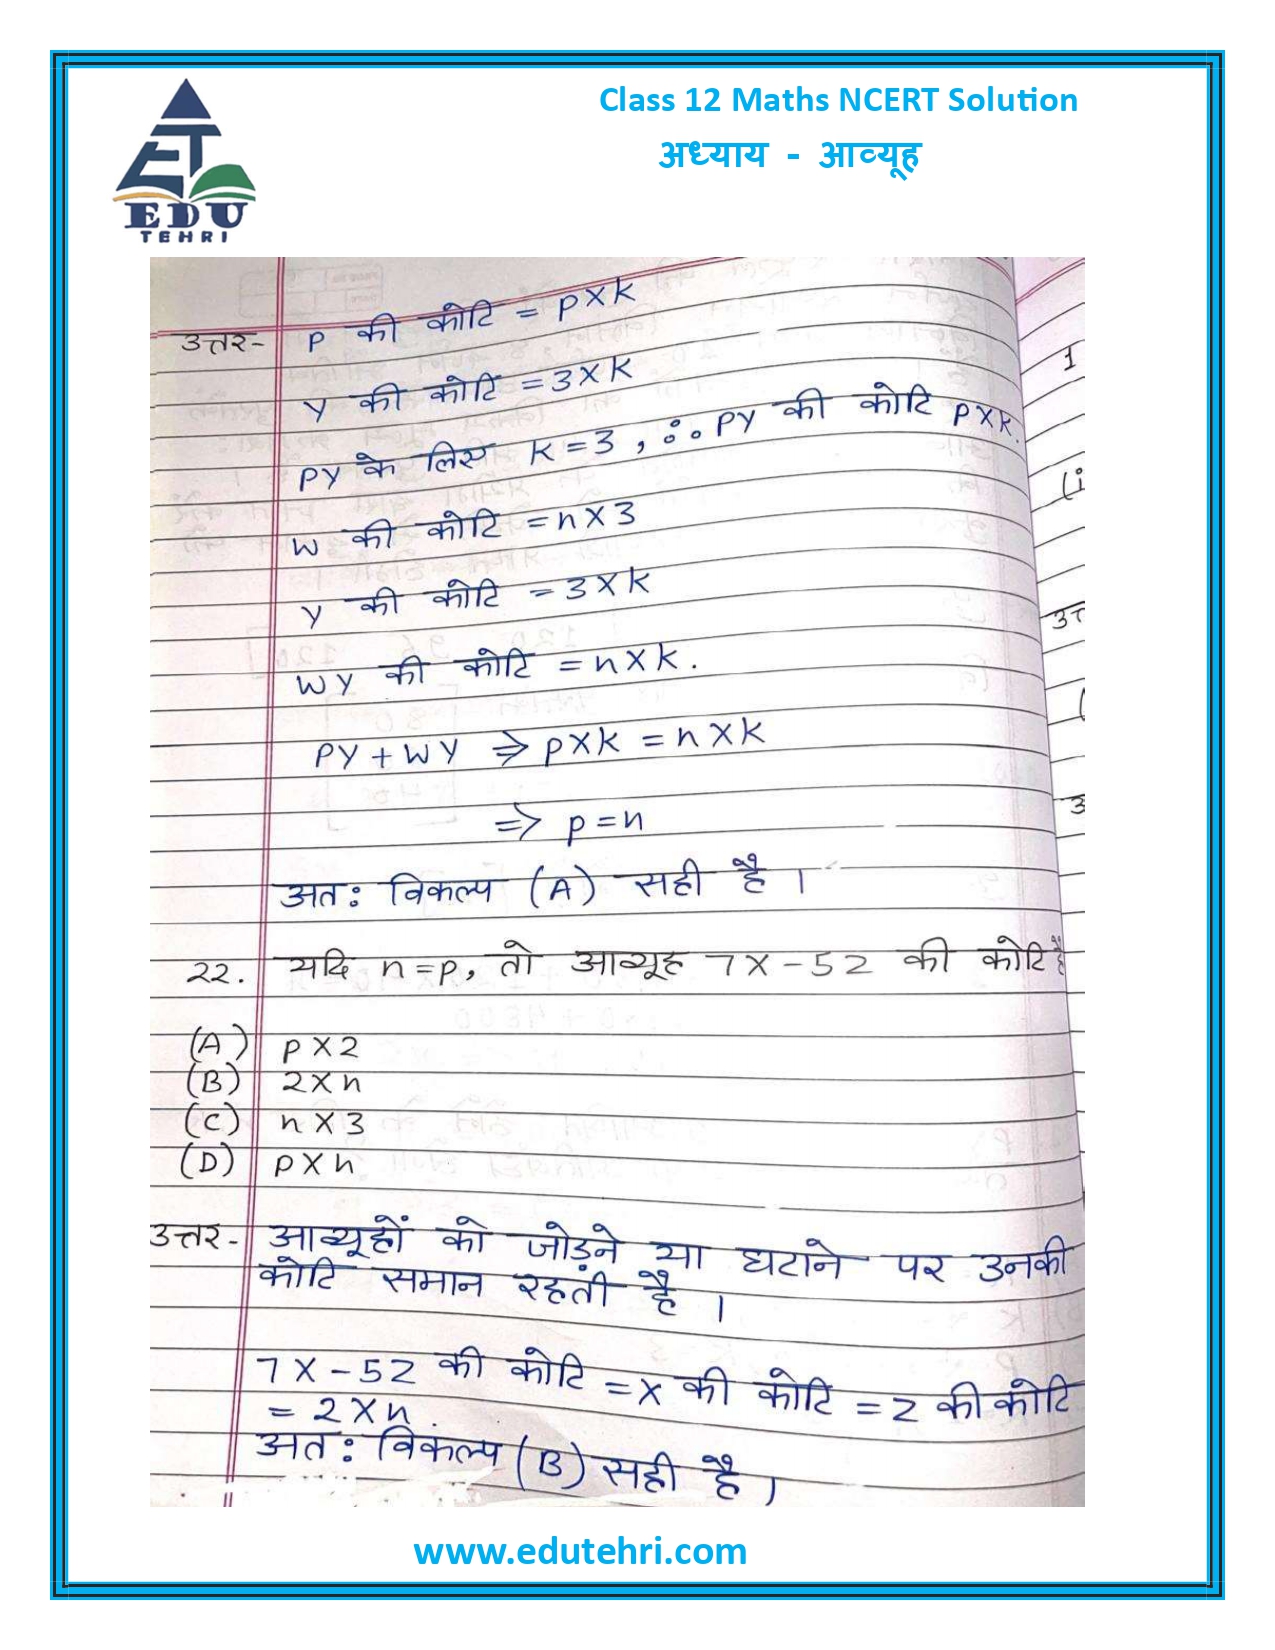 Class 12 Maths NCERT Solution
अध्याय - आव्यूह
EDU
TEHRI
उत्तर- P की कोटि = P×k
Y की कोटि = 3×k
PY के लिए k=3, ∴ PY की कोटि P×k.
W की कोटि = n×3
Y की कोटि = 3×k
WY की कोटि = n×k.
PY + WY ⇒ p×k = n×k
⇒ p = n
अतः विकल्प (A) सही है ।
22. यदि n=p, तो आव्यूह 7X-5Z की कोटि है
(A) p×2
(B) 2×n
(C) n×3
(D) p×n
उत्तर- आव्यूहों को जोड़ने या घटाने पर उनकी
कोटि समान रहती है ।
7X-5Z की कोटि = X की कोटि = Z की कोटि
= 2×n.
अतः विकल्प (B) सही है ।
www.edutehri.com